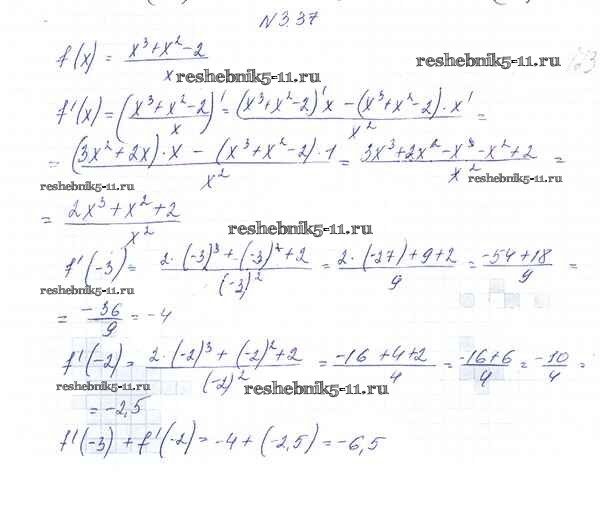 N 3.37
f(x) = (x³+x²-2)/x
reshebnik5-11.ru
reshebnik5-11.ru
f'(x) = ((x³+x²-2)/x)' = ((x³+x²-2)'x - (x³+x²-2)·x')/x² =
= ((3x²+2x)·x - (x³+x²-2)·1)/x² = (3x³+2x²-x³-x²+2)/x² =
reshebnik5-11.ru
reshebnik5-11.ru
= (2x³+x²+2)/x²
reshebnik5-11.ru
f'(-3) = (2·(-3)³+(-3)²+2)/(-3)² = (2·(-27)+9+2)/9 = (-54+18)/9 =
reshebnik5-11.ru
= -36/9 = -4
f'(-2) = (2·(-2)³+(-2)²+2)/(-2)² = (-16+4+2)/4 = (-16+6)/4 = -10/4 =
reshebnik5-11.ru
reshebnik5-11.ru
= -2,5
f'(-3) + f'(-2) = -4+(-2,5) = -6,5